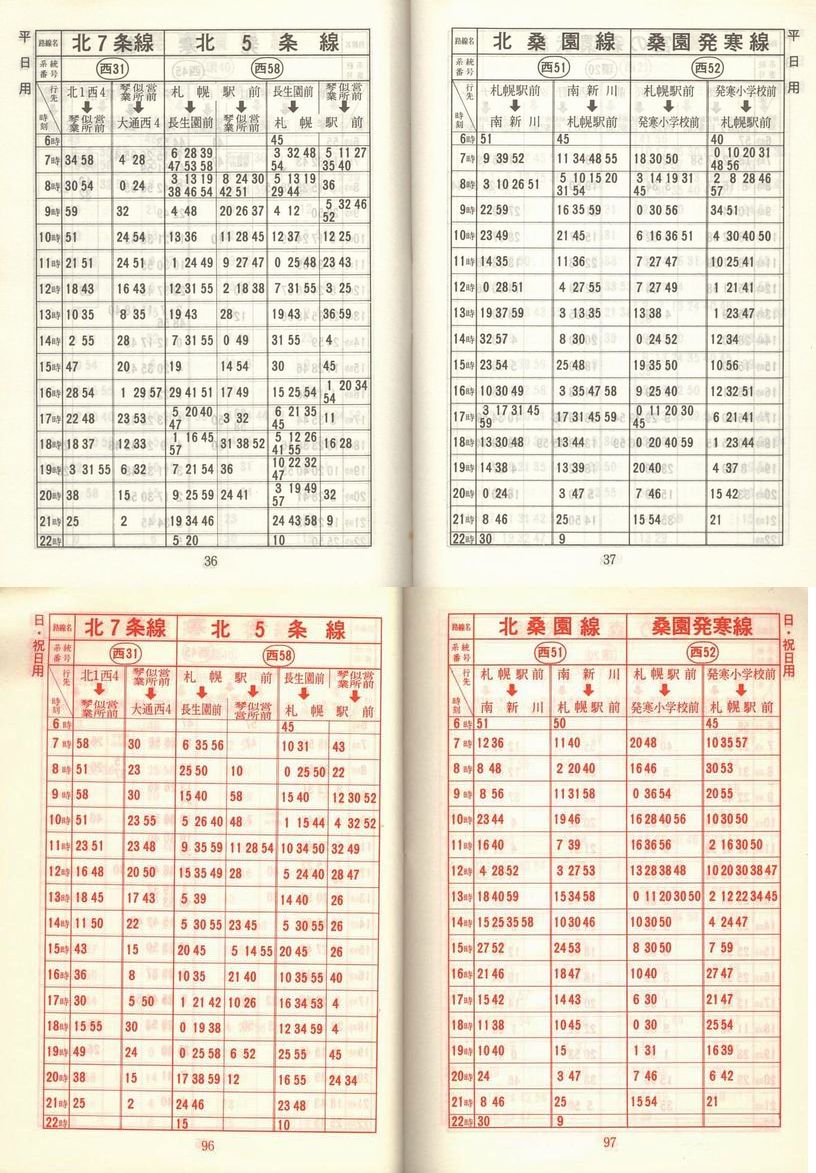 平日用
路線名 北7条線 北5条線
系統番号 西31 西58
行先 北1西4 琴似営業所前 札幌駅前 長生園前 琴似営業所前
時刻 琴似営業所前 大通西4 長生園前 琴似営業所前 札幌駅前
6時 45
7時 34 58 4 28 6 28 39 47 53 58 3 32 48 54 5 11 27 35 40
8時 30 54 0 24 3 13 19 38 46 54 8 24 30 42 51 5 13 19 29 44 36
9時 59 32 4 48 20 26 37 4 12 5 32 46 52
10時 51 24 54 13 36 11 28 45 12 37 12 25
11時 21 51 24 51 1 24 49 9 27 47 0 25 48 23 43
12時 18 43 16 43 12 31 55 2 18 38 7 31 55 3 25
13時 10 35 8 35 19 43 28 19 43 36 59
14時 2 55 28 7 31 55 0 49 31 55 4
15時 47 20 19 14 54 30 45
16時 28 54 1 29 57 29 41 51 17 49 15 25 54 1 20 34 54
17時 22 48 23 53 5 20 40 47 3 32 6 21 35 45 11
18時 18 37 12 33 1 16 45 57 31 38 52 5 12 26 41 55 16 28
19時 3 31 55 6 32 7 21 54 36 10 22 32 47
20時 38 15 9 25 59 24 41 3 19 49 57 32
21時 25 2 19 34 46 24 43 58 9
22時 5 20 10
36
平日用
路線名 北桑園線 桑園発寒線
系統番号 西51 西52
行先 札幌駅前 南新川 札幌駅前 発寒小学校前
時刻 南新川 札幌駅前 発寒小学校前 札幌駅前
6時 51 45 40
7時 9 39 52 11 34 48 55 18 30 50 0 10 20 31 48 56
8時 3 10 26 51 5 10 15 20 31 54 3 14 19 31 45 2 8 28 46 57
9時 22 59 16 35 59 0 30 56 34 51
10時 23 49 21 45 6 16 36 51 4 30 40 50
11時 14 35 11 36 7 27 47 10 25 41
12時 0 28 51 4 27 55 7 27 49 1 21 41
13時 19 37 59 3 13 35 13 38 1 23 47
14時 32 57 8 30 0 24 52 12 34
15時 23 54 25 48 19 35 50 10 56
16時 10 30 49 3 35 47 58 9 25 40 12 32 51
17時 3 17 31 45 59 17 31 45 59 0 11 20 30 45 6 21 41
18時 13 30 48 13 44 0 20 40 59 1 23 44
19時 14 38 13 39 20 40 4 37
20時 0 24 3 47 7 46 15 42
21時 8 46 25 15 54 21
22時 30 9
37
日・祝日用
路線名 北7条線 北5条線
系統番号 西31 西58
行先 北1西4 琴似営業所前 札幌駅前 長生園前 琴似営業所前
時刻 琴似営業所前 大通西4 長生園前 琴似営業所前 札幌駅前
6時 45
7時 58 30 6 35 56 10 31 43
8時 51 23 25 50 10 0 25 50 22
9時 58 30 15 40 58 15 40 12 30 52
10時 51 23 55 5 26 40 48 1 15 44 4 32 52
11時 23 51 23 48 9 35 59 11 28 54 10 34 50 32 49
12時 16 48 20 50 15 35 49 28 5 24 40 28 47
13時 18 45 17 43 5 39 14 40 26
14時 11 50 22 5 30 55 23 45 5 30 55 26
15時 43 15 20 45 5 14 55 20 45 26
16時 36 8 10 35 21 40 10 35 55 40
17時 30 5 50 1 21 42 10 26 16 34 53 4
18時 15 55 30 0 19 38 12 34 59 4
19時 49 24 0 25 58 6 52 25 55 45
20時 38 15 17 38 59 12 16 55 24 34
21時 25 2 24 46 23 48
22時 15 10
96
日・祝日用
路線名 北桑園線 桑園発寒線
系統番号 西51 西52
行先 札幌駅前 南新川 札幌駅前 発寒小学校前
時刻 南新川 札幌駅前 発寒小学校前 札幌駅前
6時 51 50 45
7時 12 36 11 40 20 48 10 35 57
8時 8 48 2 20 40 16 46 30 53
9時 8 56 11 31 58 0 36 54 20 55
10時 23 44 19 46 16 28 40 56 10 30 50
11時 16 40 7 39 16 36 56 2 16 30 50
12時 4 28 52 3 27 53 13 28 38 48 10 20 30 38 47
13時 18 40 59 15 34 58 0 11 20 30 50 2 12 22 34 45
14時 15 25 35 58 10 30 46 10 30 50 4 24 47
15時 27 52 24 53 8 30 50 7 59
16時 21 46 18 47 10 40 27 47
17時 15 42 14 43 6 30 21 47
18時 11 38 10 45 0 30 25 54
19時 10 40 15 1 31 16 39
20時 24 3 47 7 46 6 42
21時 8 46 25 15 54 21
22時 30 9
97